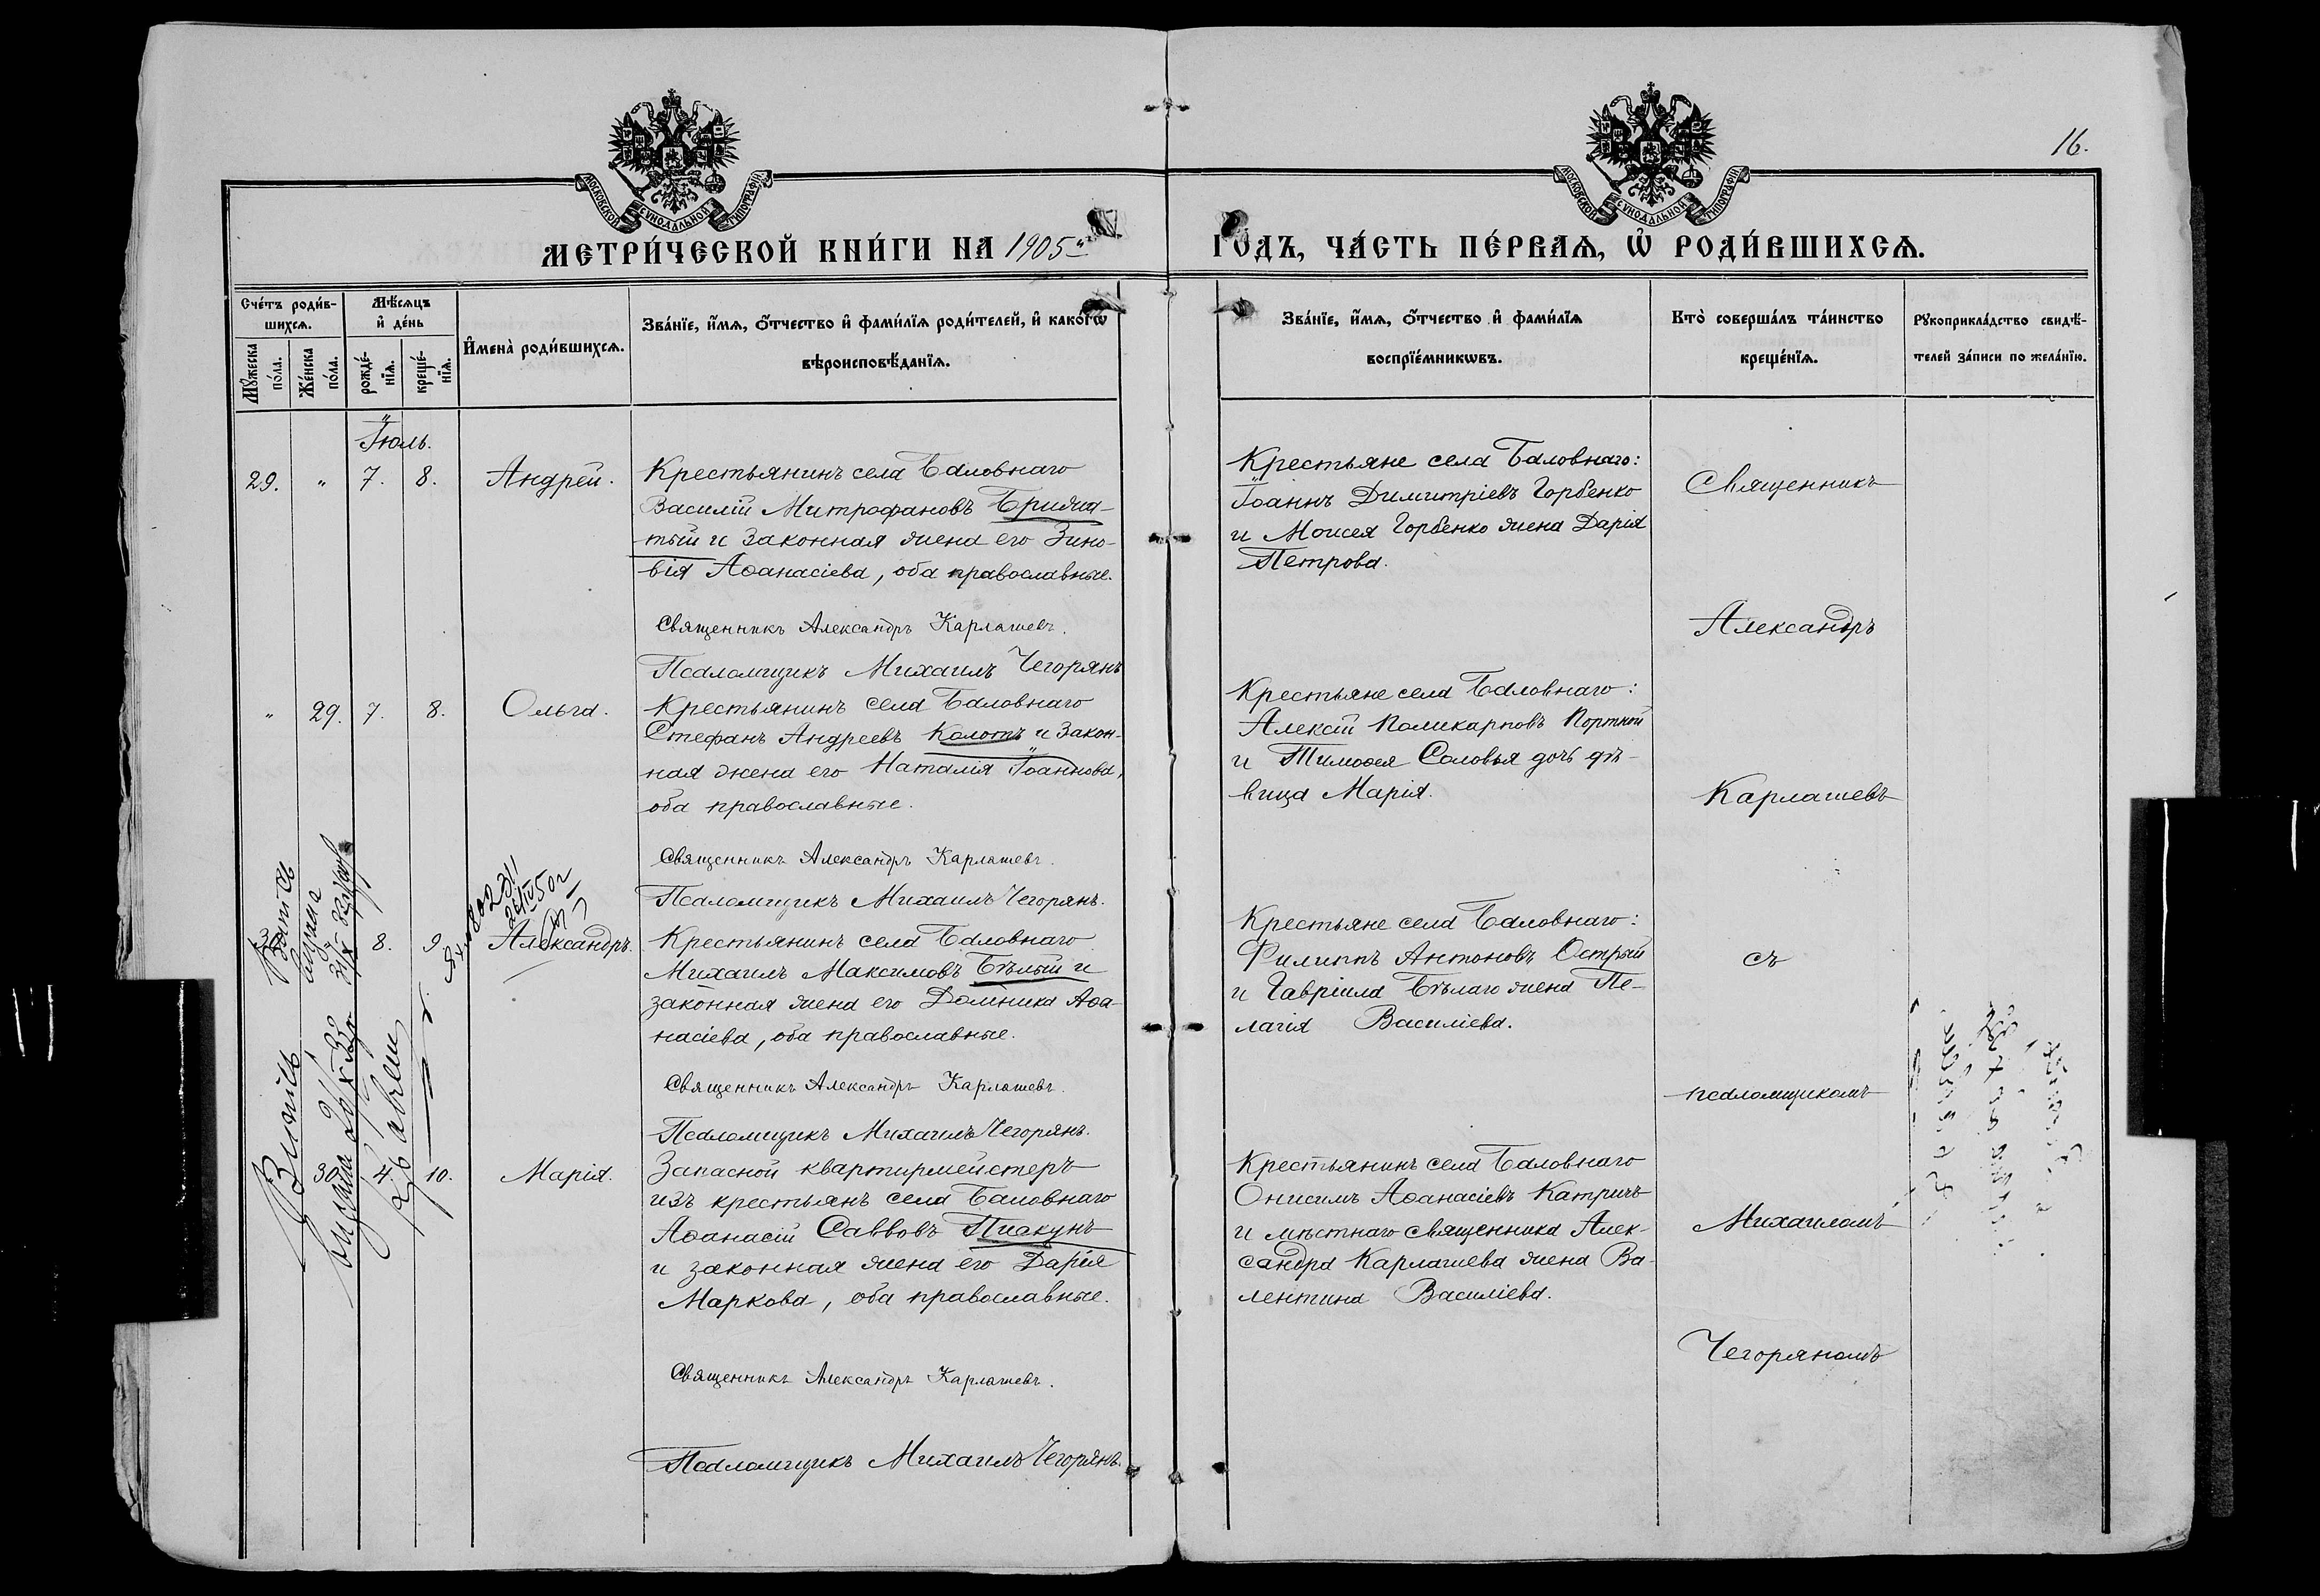 16.
МОСКОВСКОЙ СУНОДАЛЬНОЙ ТИПОГРАФІИ
МОСКОВСКОЙ СУНОДАЛЬНОЙ ТИПОГРАФІИ
МЕТРИ́ЧЕСКОЙ КНИ́ГИ НА 1905 й
ГО́ДЪ, ЧА́СТЬ ПЕ́РВАѦ, Ѡ҆ РОДИ́ВШИХСѦ.
Сче́тъ роди́в-
шихсѧ.
Мꙋ́жеска
по́ла.
Же́нска
по́ла.
Мѣ́сѧцъ
и҆ де́нь
рожде́-
нїѧ.
креще́-
нїѧ.
И҆мена̀ роди́вшихсѧ.
Зва́нїе, и҆́мѧ, ѻ҆́тчество и҆ фами́лїѧ роди́телей, и҆ како́гѡ
вѣроисповѣ́данїѧ.
Зва́нїе, и҆́мѧ, ѻ҆́тчество и҆ фами́лїѧ
воспрїе́мникѡвъ.
Кто̀ соверша́лъ та́инство
креще́нїѧ.
Рꙋкоприкла́дство свидѣ́-
телей за́писи по жела́нїю.
Іюль.
29. " 7. 8. Андрей.
Крестьянинъ села Баловнаго
Василій Митрофановъ Бридча-
тый и законная жена его Зино-
вія Аѳанасіева, оба православные.
Священникъ Александръ Карлашевъ.
Псаломщикъ Михаилъ Чегорянъ
Крестьяне села Баловнаго:
Іоаннъ Димитріевъ Горбенко
и Моисея Горбенко жена Дарія
Петрова.
" 29. 7. 8. Ольга.
Крестьянинъ села Баловнаго
Стефанъ Андреевъ Колотъ и закон-
ная жена его Наталія Іоаннова,
оба православные.
Священникъ Александръ Карлашевъ.
Псаломщикъ Михаилъ Чегорянъ.
Крестьяне села Баловнаго:
Алексій Поликарповъ Портной
и Тимоѳея Соловья дочь дѣ-
вица Марія.
8. 9. Александръ.
Крестьянинъ села Баловнаго
Михаилъ Максимовъ Бѣлый и
законная жена его Домника Аѳа-
насіева, оба православные.
Священникъ Александръ Карлашевъ.
Псаломщикъ Михаилъ Чегорянъ.
Крестьяне села Баловнаго:
Филиппъ Антоновъ Острый
и Гавріила Бѣлаго жена Пе-
лагія Василіева.
30. 4. 10. Марія.
Запасной квартирмейстеръ
изъ крестьянъ села Баловнаго
Аѳанасій Саввовъ Пискунъ
и законная жена его Дарія
Маркова, оба православные.
Священникъ Александръ Карлашевъ.
Псаломщикъ Михаилъ Чегорянъ.
Крестьянинъ села Баловнаго
Онисимъ Аѳанасіевъ Катричъ
и мѣстнаго священника Алек-
сандра Карлашева жена Ва-
лентина Василіева.
Священникъ
Александръ
Карлашевъ
съ
псаломщикомъ
Михаиломъ
Чегоряномъ